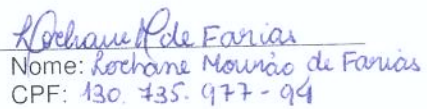 Rochane M de Farias
Nome: Rochane Mourão de Farias
CPF: 130.735.977-94